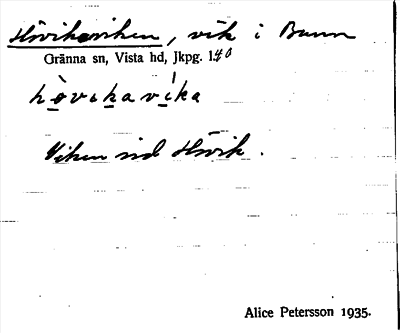 Hövikaviken, vik i Bunn
Gränna sn, Vista hd, Jkpg. l. 40
hòvikavíka
Viken vid Hövik.
Alice Petersson 1935.